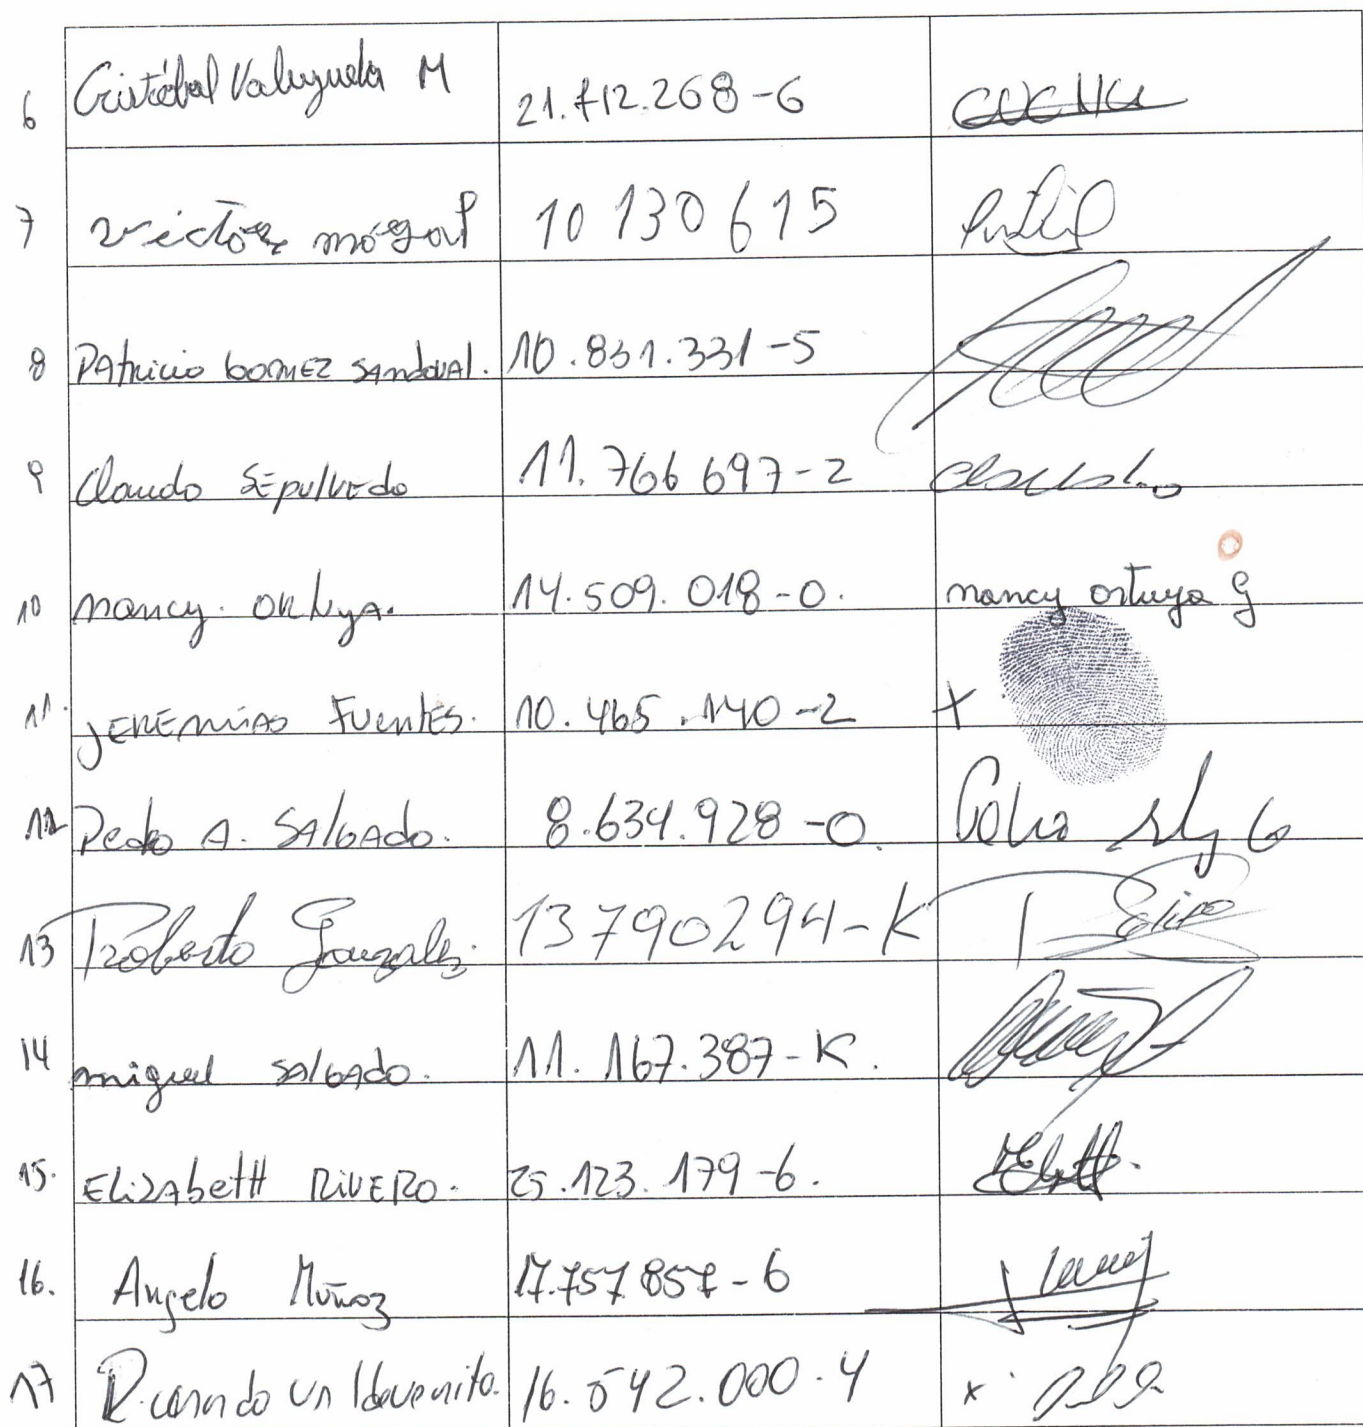 6 Cristóbal Valenzuela M 21.712.268-6
7 Victor mógol 10 130 615
8 PAtricio GOMEZ SANdovAl. 10.831.331-5
9 Claudo SEpulvEdo 11.766 697-2
10 nancy. ORtuyA. 14.509.018-0. nancy ortuya G
11. JEREMíAS FuentEs. 10.465.140-2 X
12 Pedro A. SAlGAdo. 8.634.928-0.
13 Roberto Gonzalez. 13790294-K
14 miguel SAlGAdo. 11.167.387-K.
15. ElizAbetH RiVERO. 25.123.179-6.
16. Angelo Muñoz 17.757.857-6
17 Ricardo Valdevenito. 16.542.000.4 x